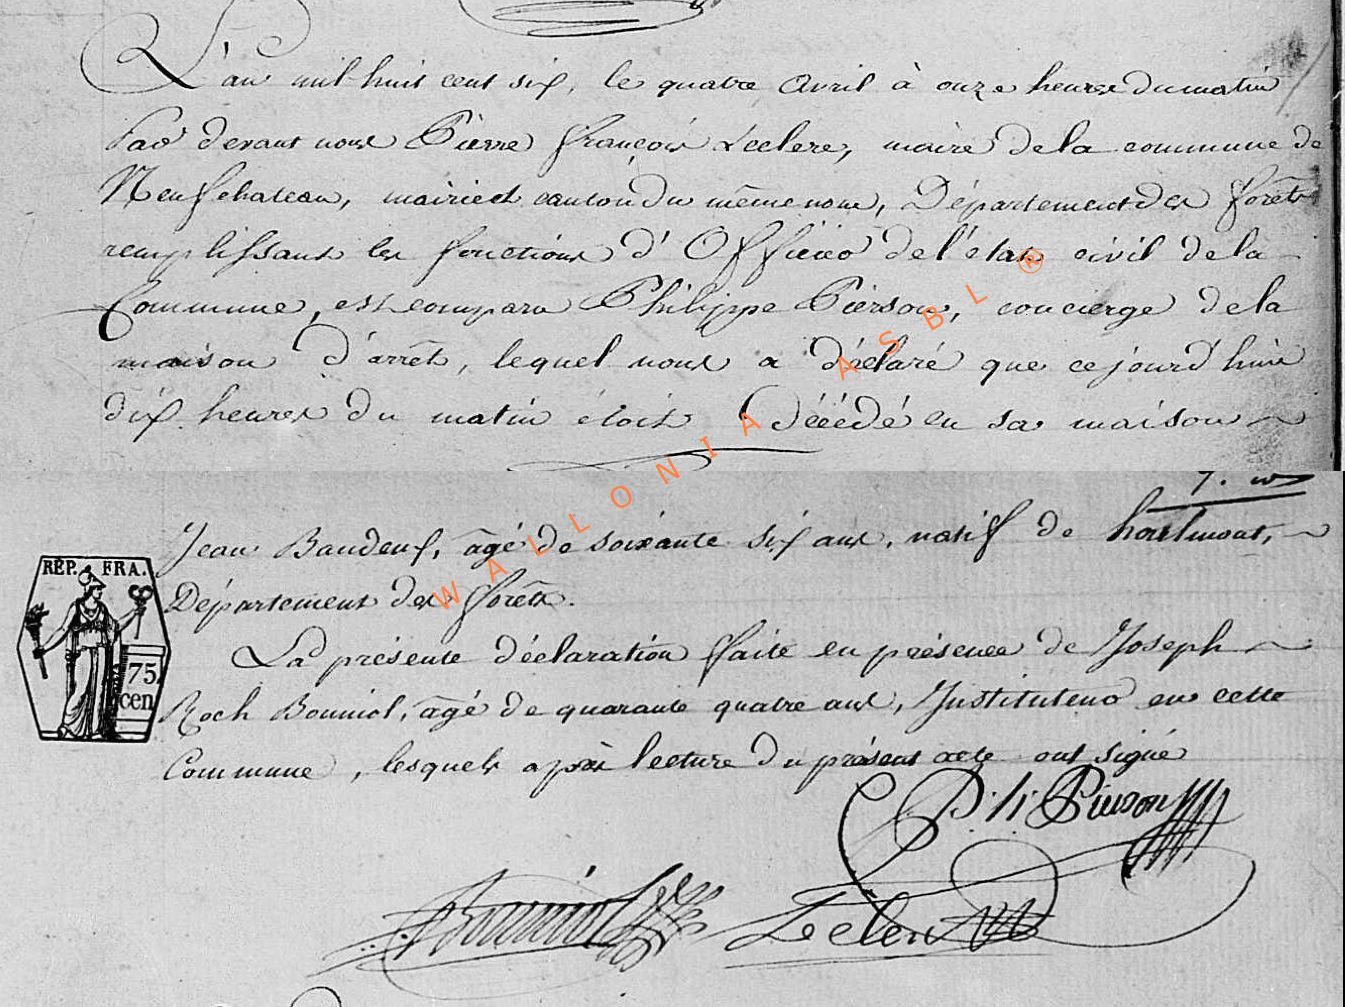 L'an mil huit cent six, le quatre avril à onze heures du matin
Par devant nous Pierre François Leclerc, maire de la commune de
Neufchateau, mairie et canton du même nom, Département des forêts
remplissant les fonctions d'Officier de l'état civil de la
Commune, est comparu Philippe Pierson, concierge de la
maison d'arrêt, lequel nous a déclaré que ce jourd'hui
dix heures du matin étoit Décédé en sa maison
Jean Baudeux, âgé de soixante six ans, natif de
Département des forêts.
La présente déclaration faite en présence de Joseph
Roch Bonniol, âgé de quarante quatre ans, Instituteur en cette
Commune, lesquels après lecture du présent acte ont signé
Phi Pierson
Bonniol
Leclerc
RÉP. FRA.
75
cen
WALLONIA ASBL ®